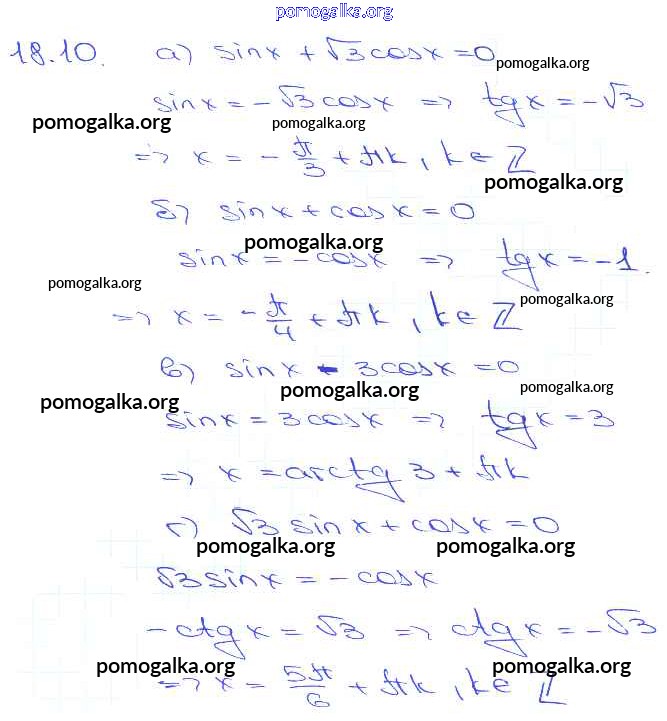 pomogalka.org
18.10. а) sinx + √3cosx = 0
pomogalka.org
sinx = -√3cosx => tgx = -√3
pomogalka.org pomogalka.org
=> x = -π/3 + πk, k∈ℤ
pomogalka.org
б) sinx + cosx = 0
pomogalka.org
sinx = -cosx => tgx = -1.
pomogalka.org pomogalka.org
=> x = -π/4 + πk, k∈ℤ
в) sinx - 3cosx = 0
pomogalka.org pomogalka.org pomogalka.org
sinx = 3cosx => tgx = 3
=> x = arctg 3 + πk
г) √3 sinx + cosx = 0
pomogalka.org pomogalka.org
√3sinx = -cosx
-ctgx = √3 => ctgx = -√3
pomogalka.org pomogalka.org
=> x = 5π/6 + πk, k∈ ℤ